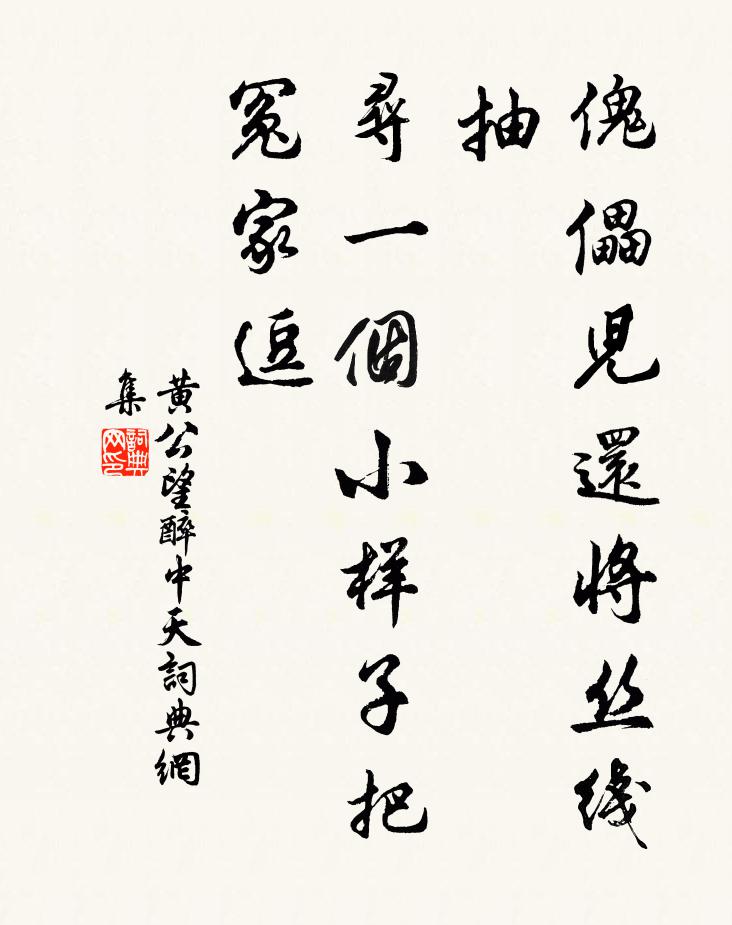 傀儡兒還將丝綫
抽
尋一個小样子把
冤家逗
黃公望醉中天詞典網
集
詞典
网印